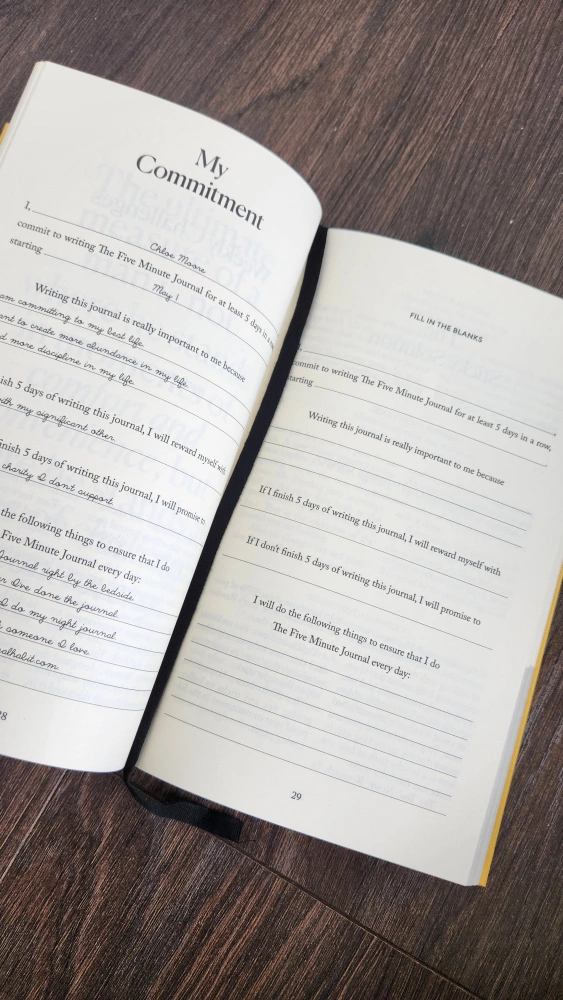 My
Commitment
I,
Chloe Moore
commit to writing The Five Minute Journal for at least 5 days in a
starting
May 1
Writing this journal is really important to me because
am committing to my best life.
to create more abundance in my life.
more discipline in my life.
5 days of writing this journal, I will reward myself with
with my significant other.
5 days of writing this journal, I will promise to
charity I don't support.
the following things to ensure that I do
Five Minute Journal every day:
Journal right by the bedside.
I've done the journal.
I do my night journal.
someone I love.
FILL IN THE BLANKS
commit to writing The Five Minute Journal for at least 5 days in a row,
starting
Writing this journal is really important to me because
If I finish 5 days of writing this journal, I will reward myself with
If I don't finish 5 days of writing this journal, I will promise to
I will do the following things to ensure that I do
The Five Minute Journal every day:
29